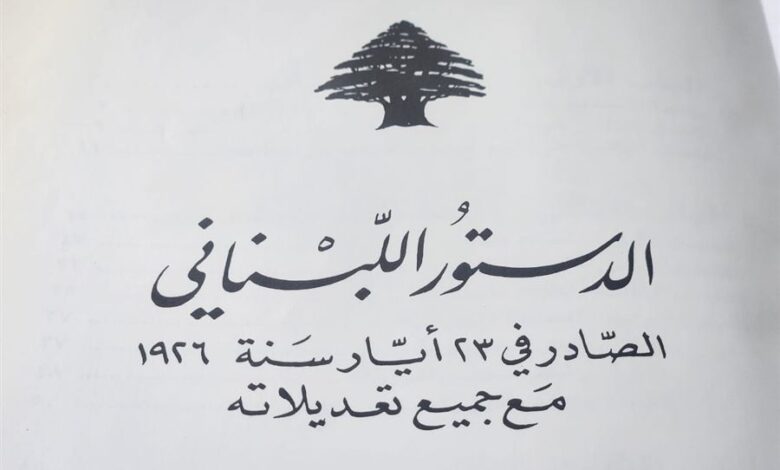 الدستورُ اللّبْناني
الصّادر في ٢٣ أيّار سَنة ١٩٢٦
مَع جميع تعديلاته